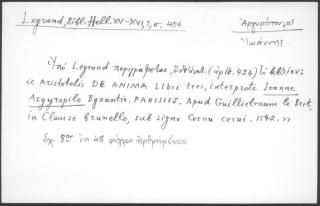 Legrand, Bibl. Hell. XV-XVI, 3, σ. 406
Ἀργυρόπουλος
Ἰωάννης
Ὑπὸ Legrand περιγράφεται, (ἀριθ. 424) τὸ βιβλίον:
« Aristotelis DE ANIMA Libri tres, interprete Ioanne
Argyropilo Byzantio. PARISIIS, Apud Guillielmum le Bret,
in Clauso brunello, sub signo Cornu cerui. 1542. »
Σχ. 8ον ἐκ 48 φύλλων ἀριθμημένων